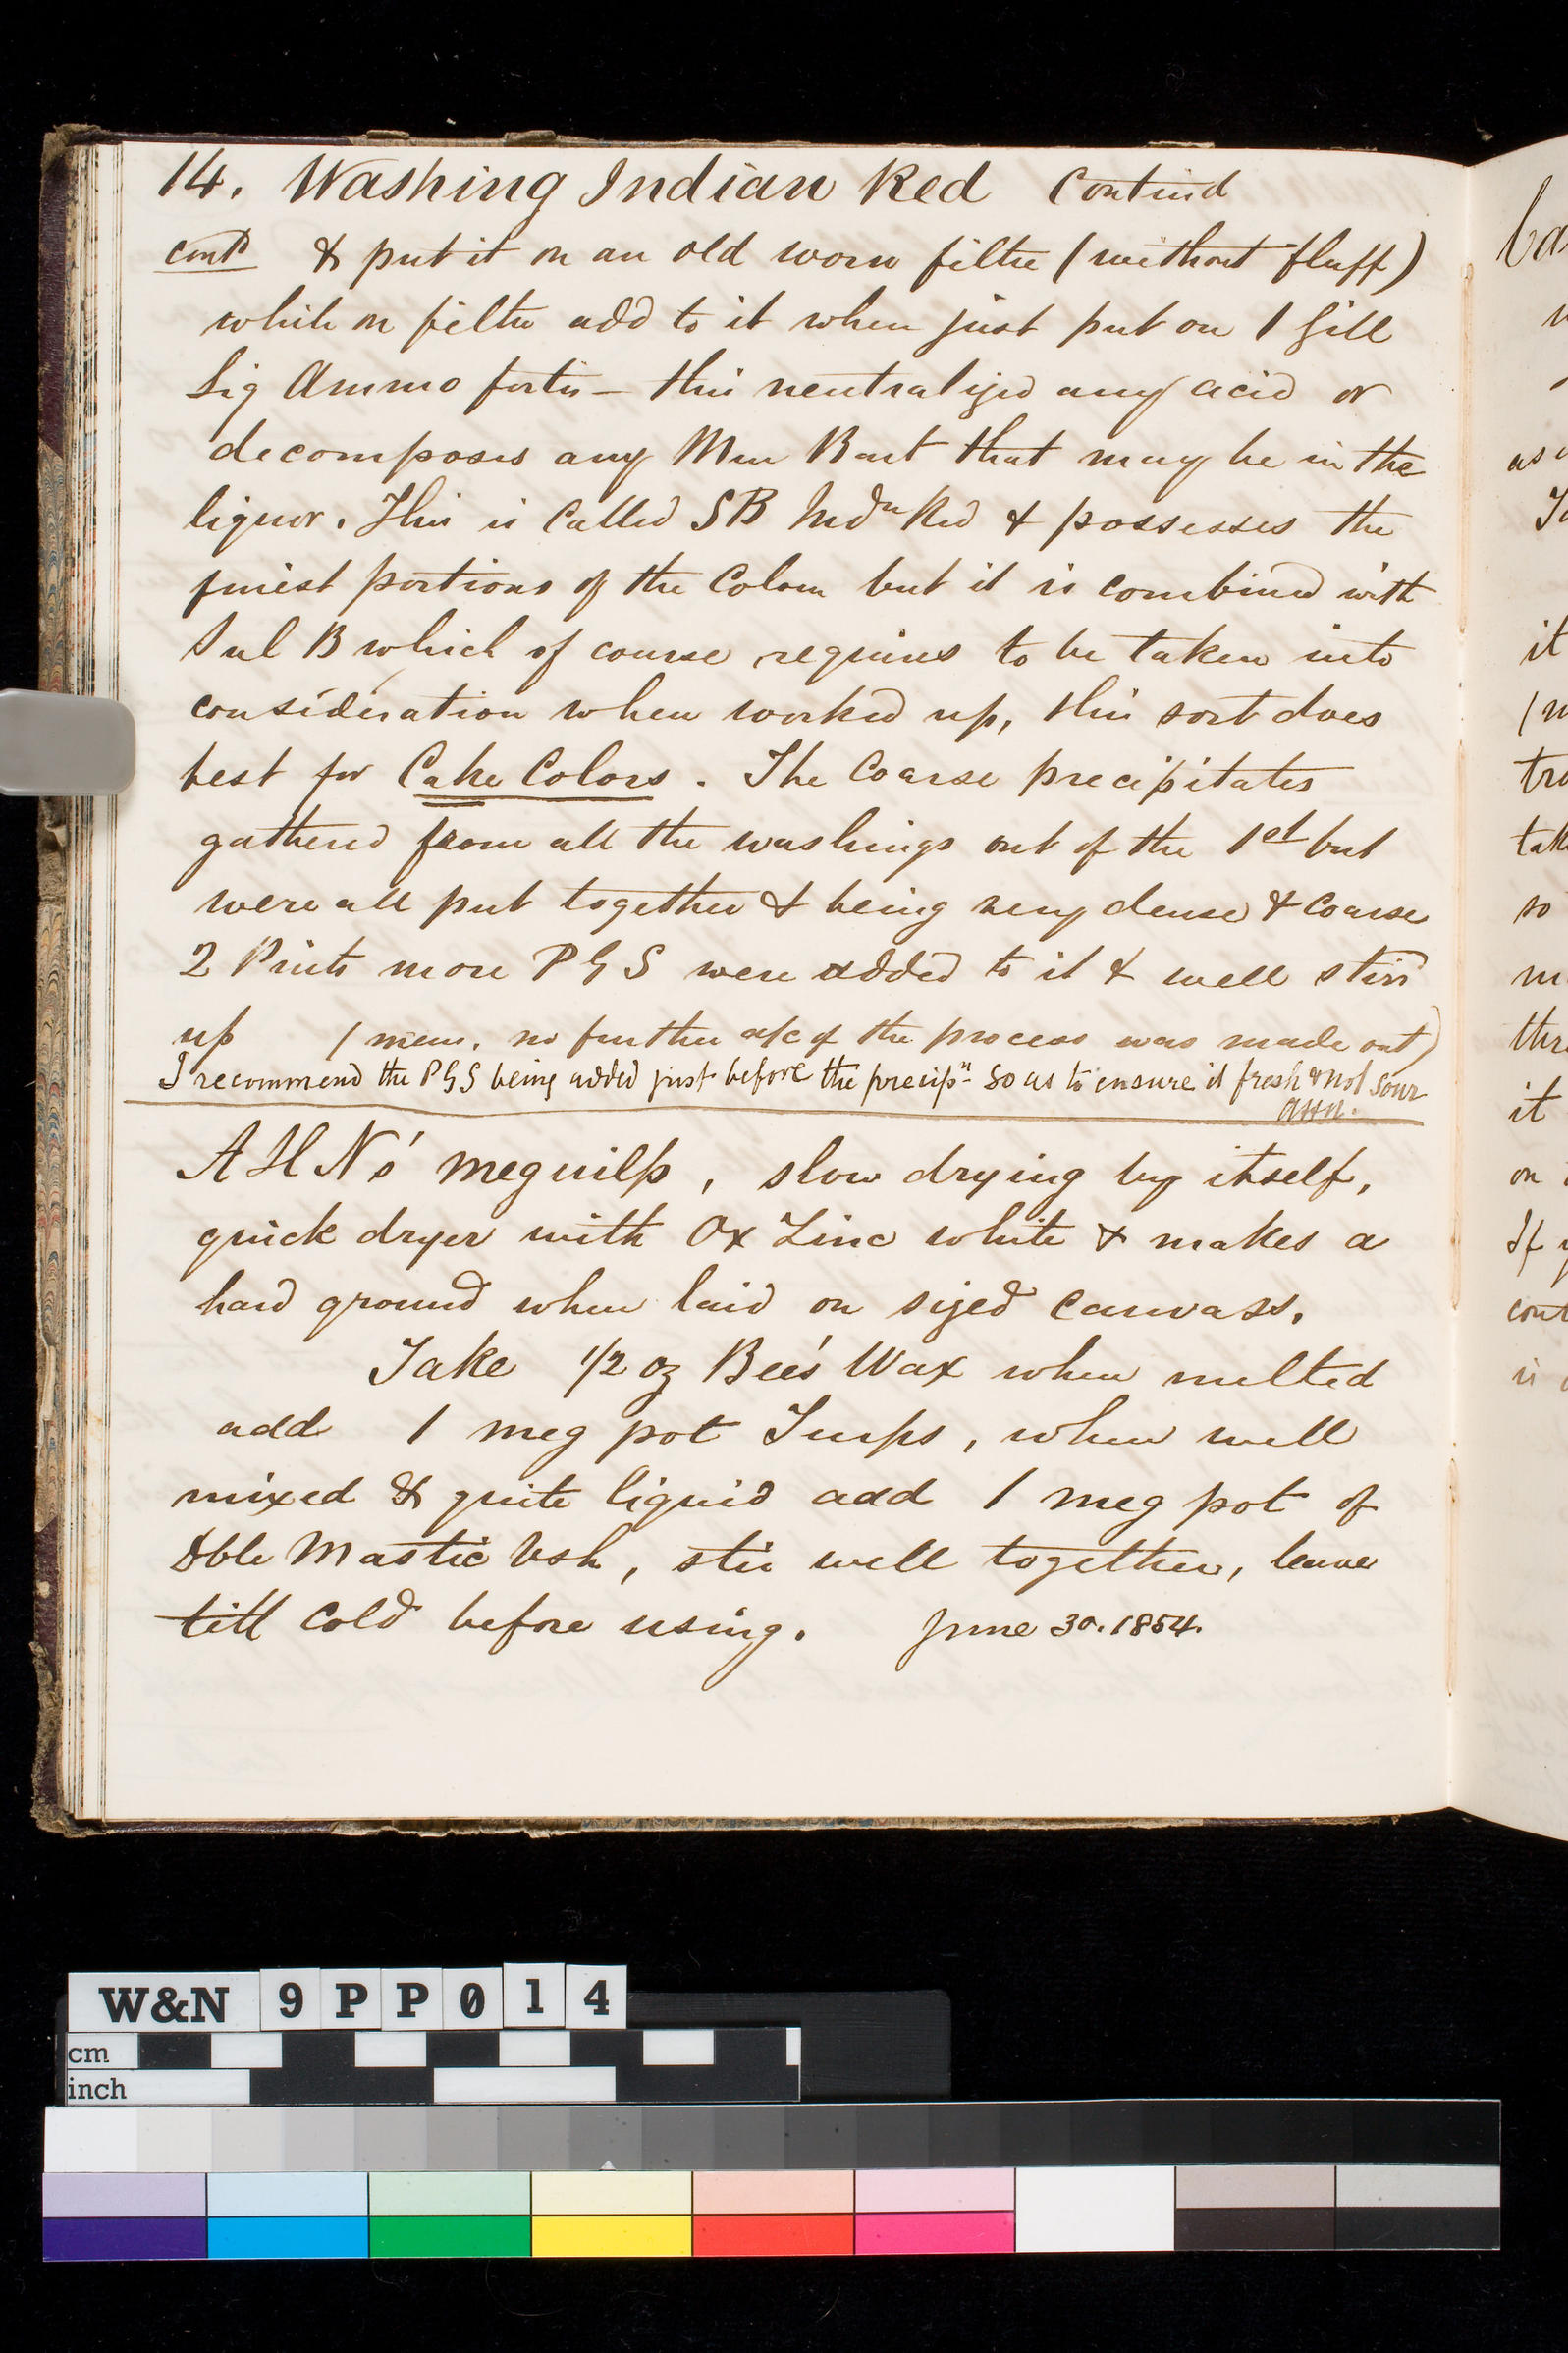 14. Washing Indian Red Contind
contd & put it on an old worn filter (without fluff)
while on filter add to it when just put on 1 Gill
Liq Ammo fortis – this neutralized any acid or
decomposes any Mur Bart that may be in the
liquor. This is Called SB Indn Red & possesses the
finest portions of the Colour but it is combined with
Sul B which of course requires to be taken into
consideration when worked up, this sort does
best for Cake Colors. The Coarse precipitates
gathered from all the washings out of the 1st but
were all put together & being very dense & Coarse
2 Pints more P G S were added to it & well stirrd
up (mem. no further a/c of the process was made out)
I recommend the P G S being added just before the precipn so as to ensure it fresh & not sour
A H N's meguilp, slow drying by itself,
quick dryer with Ox Zinc white & makes a
hard ground when laid on sized canvass.
Take 1/2 oz Bee's Wax when melted
add 1 meg pot Turps, when well
mixed & quite liquid add 1 meg pot of
Dble Mastic Vsh, stir well together, leave
till Cold before using. June 30. 1854.
ca
as
it
tra
tak
so
m
it
on
If
cont
is
W&N 9PP014
cm
inch